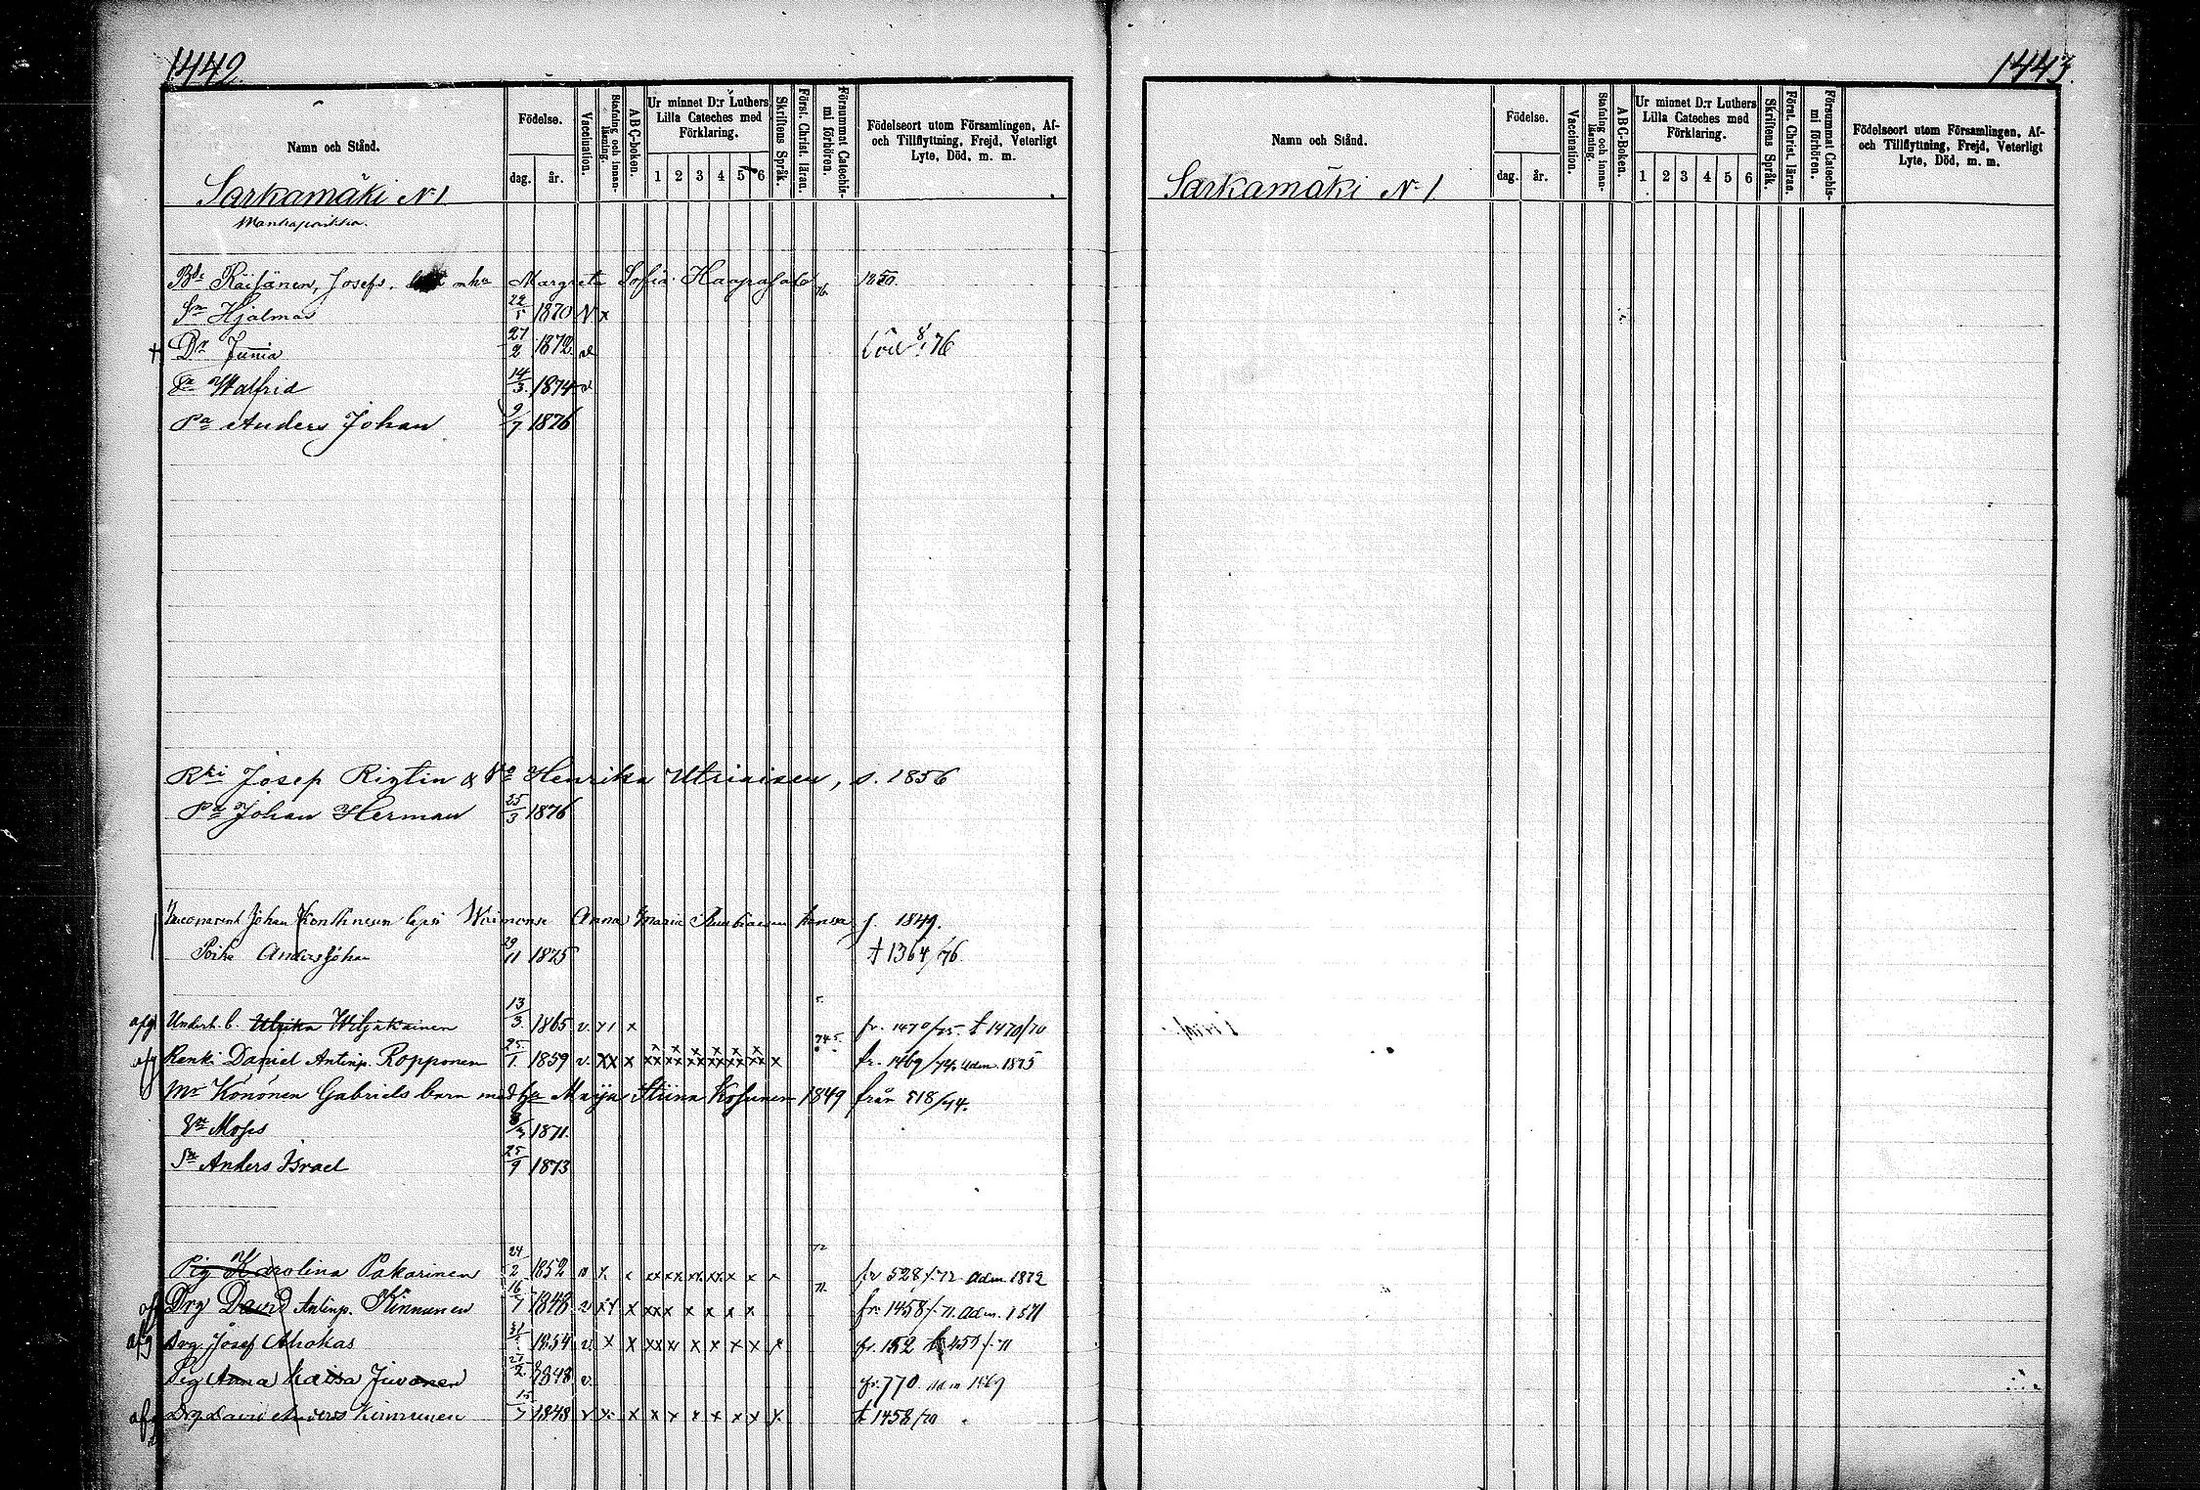 1442
Namn och Stånd.
Födelse.
dag.
år.
Vaccination.
Stafning och innan-läsning.
A B C-boken.
Ur minnet D:r Luthers
Lilla Cateches med
Förklaring.
1 2 3 4 5 6
Skriftens Språk.
Först. Christ. läran.
Försummat Catechis-
mi förhören.
Födelseort utom Församlingen, Af-
och Tillflyttning, Frejd, Veterligt
Lyte, Död, m. m.
Sarkamäki N 1
Räisänen, Josefs. Margreta Sofia 1850.
Sn Hjalmar 22/5 1870 x
+ Dr 27/2 1872 v Död 76
Sn Walfrid 14/3 1874 v
Pa Anders Johan 9/7 1876
Rki Josep Rigtin & Va Henrika Utriainen, s. 1856
Pa Johan Herman 25/3 1876
Johan Kontinen lapsi Anna Maria f. 1849.
Poika Anders Johan 29/11 1875 t 1364/76
Underh. b. Ulrika Wiljakainen 13/3 1865 v. fr. 1470/75. t 1470/70
Renki Daniel Antinp. Ropponen 25/1 1859 v. xx x fr. 1469/74. Adm. 1875
Mr Könönen Gabriels barn med hu Maija Stiina Kosunen 1849 från 518/74.
Sn Moses 1871.
Sn Anders Israel 25/9 1873
Pig Karolina Pakarinen 24/2 1852 fr 528/72 Adm. 1872
Drg David Antinp. Kinnunen 16/7 1848 v fr. 1458/71. Adm. 1871
afg Drg Josef Ahokas 1854 v. x x fr. 152 t 459/71
Pig Anna Kaisa Juvonen 1848 v. fr. 770. Adm 1869
Drg David Anders Kinnunen 15/7 1848 v t 1458/70
1443
Namn och Stånd.
Födelse.
dag.
år.
Vaccination.
Stafning och innan-läsning.
A B C-Boken.
Ur minnet D:r Luthers
Lilla Cateches med
Förklaring.
1 2 3 4 5 6
Skriftens Språk.
Först. Christ. läran.
Försummat Catechis-
mi förhören.
Födelseort utom Församlingen, Af-
och Tillflyttning, Frejd, Veterligt
Lyte, Död, m. m.
Sarkamäki N 1.